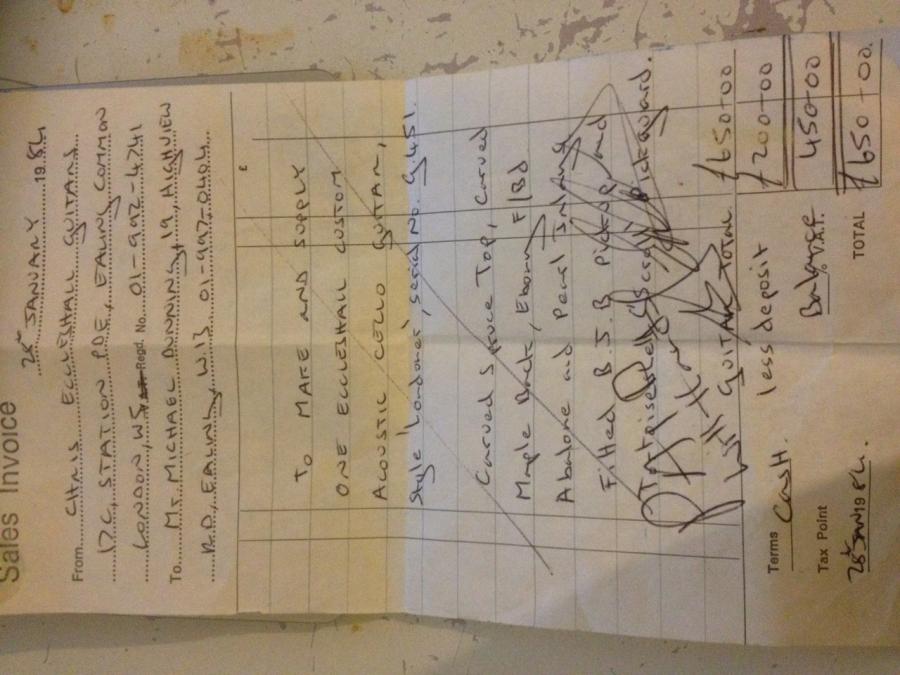 Sales Invoice
28th JANUARY 1984
From CHRIS ECCLESHALL GUITARS
17C, STATION PDE, EALING COMMON
LONDON, W5 VAT Regd. No. 01-992-4741
To Mr. MICHAEL DUNNING, 19, HIGHVIEW
RD, EALING, W.13 01-997-0404
£
TO MAKE AND SUPPLY
ONE ECCLESHALL CUSTOM
ACOUSTIC CELLO GUITAR,
Style 'Londoner', serial No. G451.
Carved Spruce Top, Carved
Maple Back, Ebony F/Bd
Abalone and Pearl Inlays
Fitted B.J.B Pickup and
Tortoiseshell Pickguard.
GUITAR TOTAL £650-00
less deposit £200-00
Terms Cash. Balance V.A.T. 450-00
Tax Point
28th JAN 1984. TOTAL £650-00.